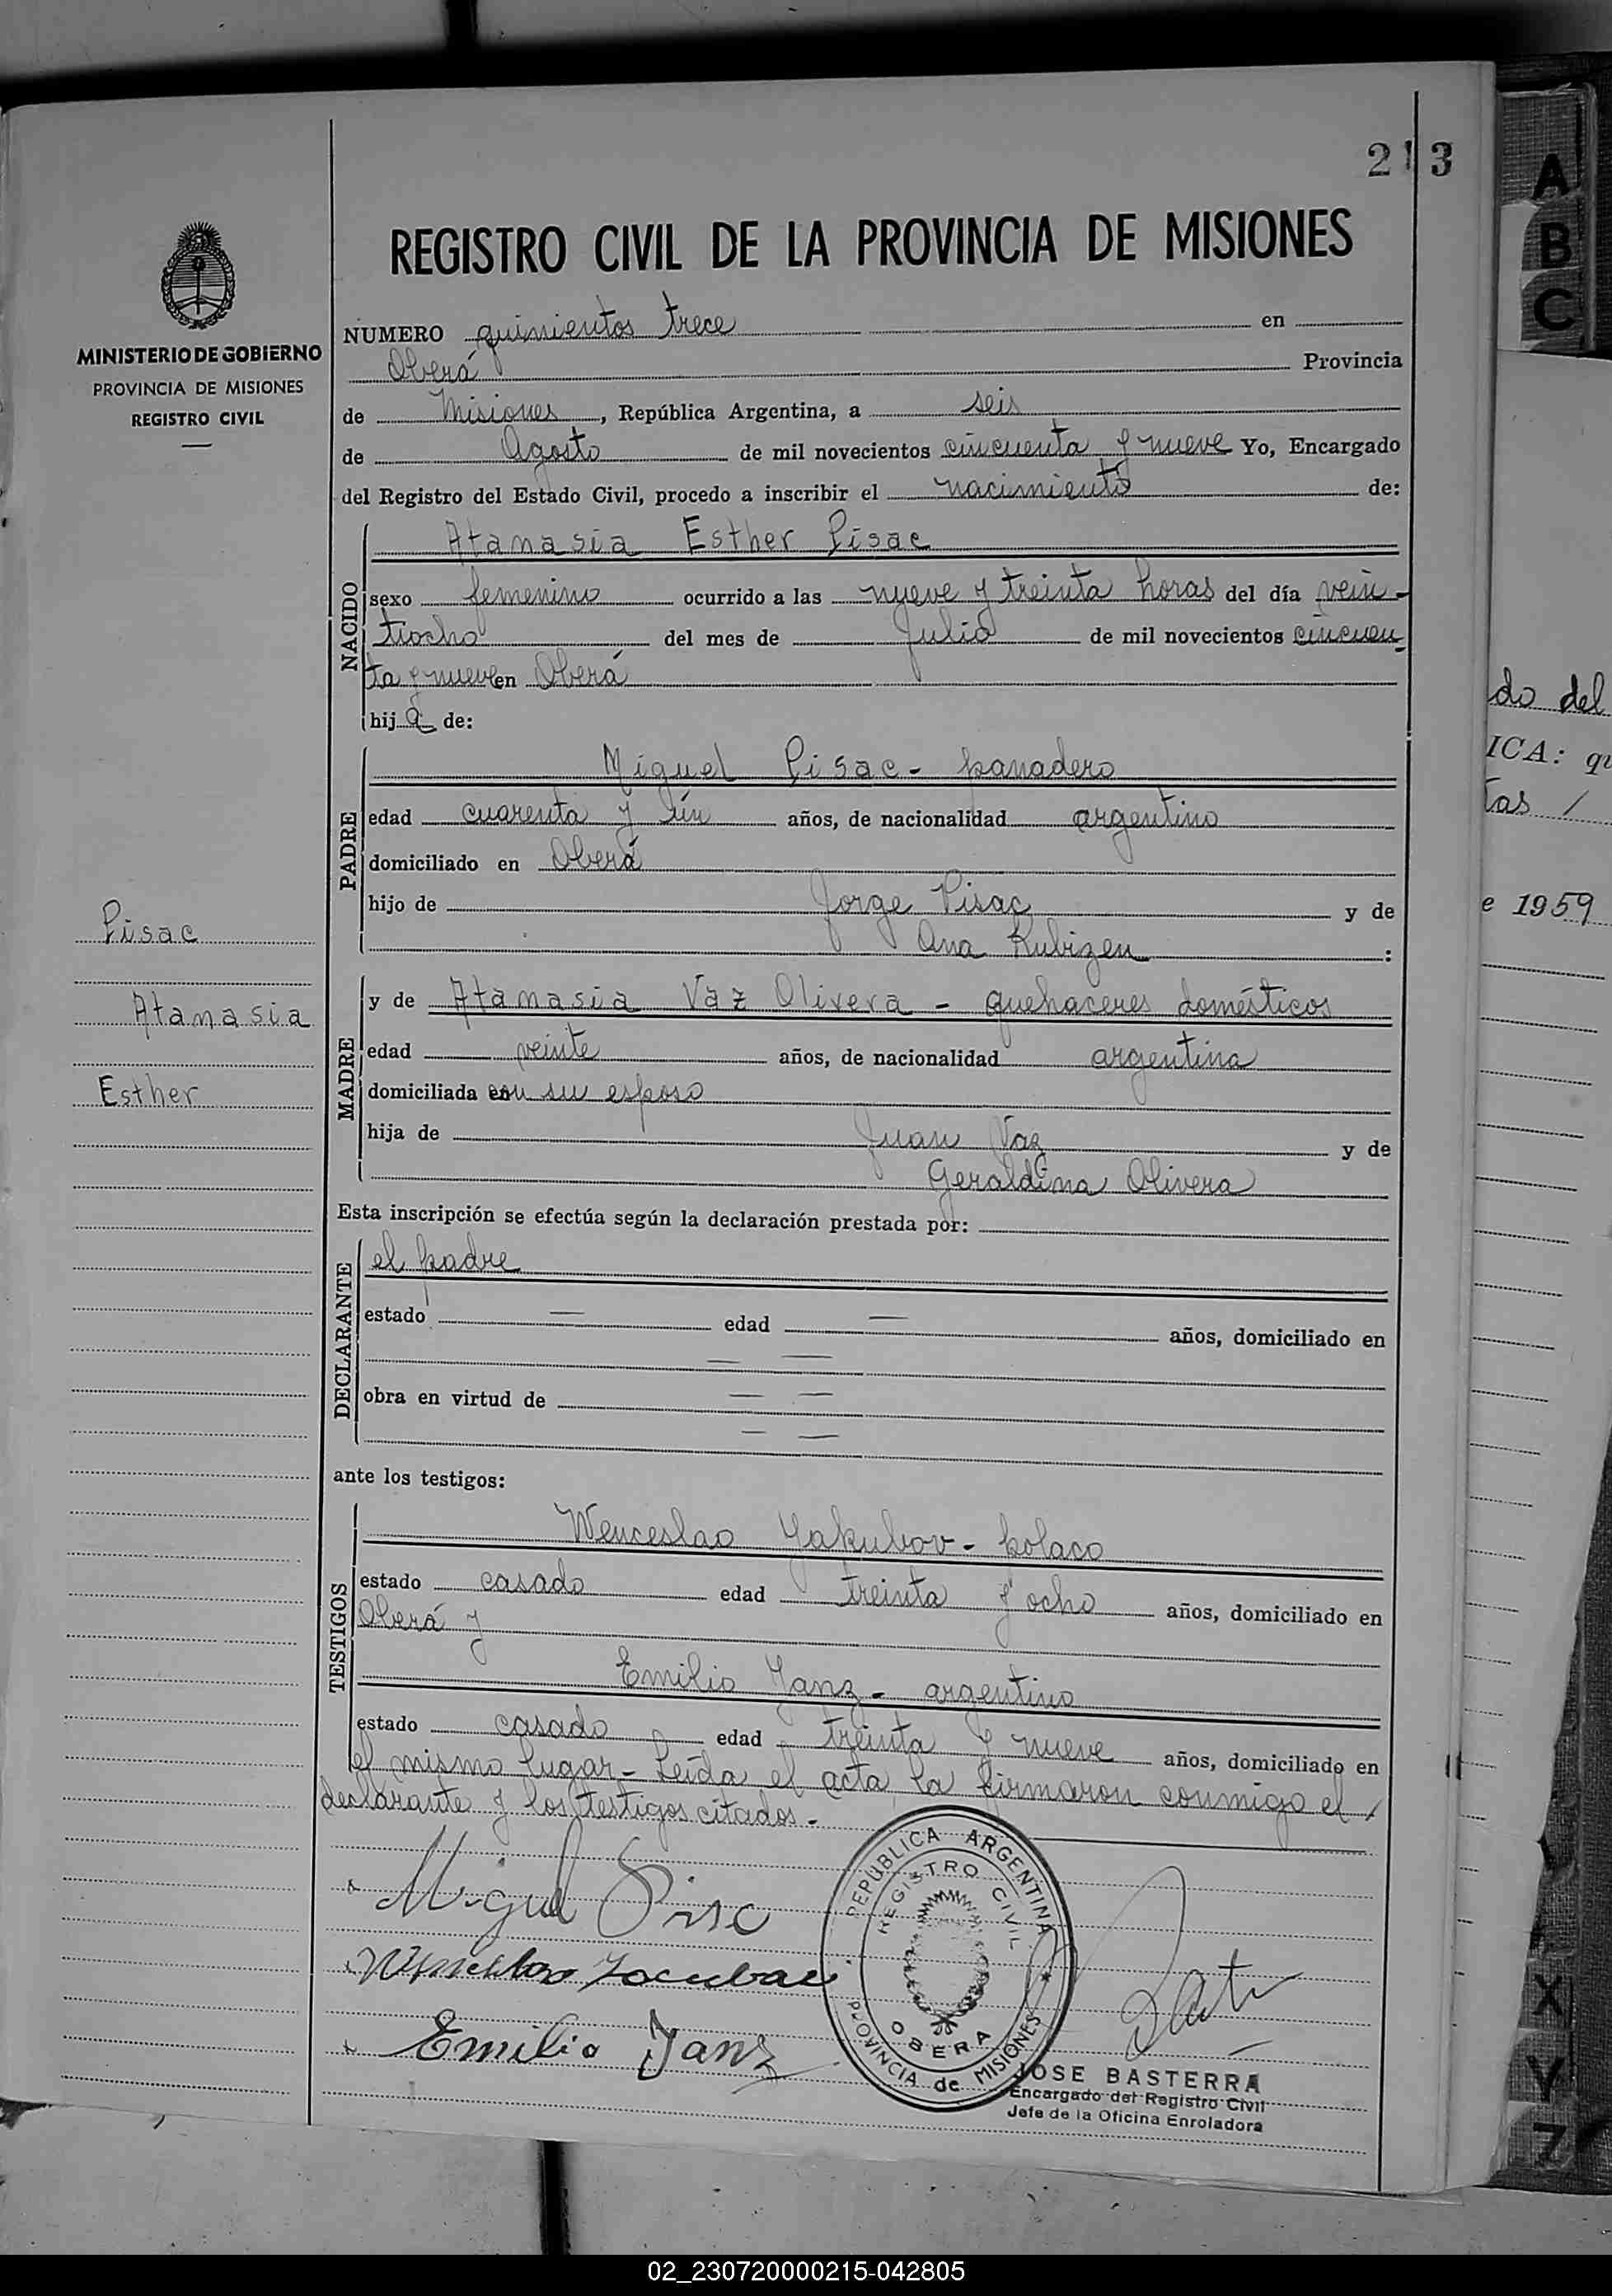 213
REGISTRO CIVIL DE LA PROVINCIA DE MISIONES
MINISTERIO DE GOBIERNO
PROVINCIA DE MISIONES
REGISTRO CIVIL
NUMERO quinientos trece en
Oberá Provincia
de Misiones, República Argentina, a seis
de Agosto de mil novecientos cincuenta y nueve Yo, Encargado
del Registro del Estado Civil, procedo a inscribir el nacimiento de:
NACIDO
Atanasia Esther Pisac
sexo femenino ocurrido a las nueve y treinta horas del día vein-
tiocho del mes de Julio de mil novecientos cincuen-
ta y nueve en Oberá
hija de:
PADRE
Miguel Pisac - panadero
edad cuarenta y un años, de nacionalidad argentino
domiciliado en Oberá
hijo de Jorge Pisac y de
Ana Rubizen :
Pisac
Atanasia
Esther
MADRE
y de Atanasia Vaz Olivera - quehaceres domésticos
edad veinte años, de nacionalidad argentina
domiciliada con su esposo
hija de Juan Vaz y de
Geraldina Olivera
Esta inscripción se efectúa según la declaración prestada por:
DECLARANTE
el padre
estado — edad — años, domiciliado en
— —
obra en virtud de — —
— —
ante los testigos:
TESTIGOS
Wenceslao Yakubov - polaco
estado casado edad treinta y ocho años, domiciliado en
Oberá y
Emilio Janz - argentino
estado casado edad treinta y nueve años, domiciliado en
el mismo lugar - Leída el acta la firmaron conmigo el /
declarante y los testigos citados.-
Miguel Pisac
Emilio Janz
REPUBLICA ARGENTINA
REGISTRO CIVIL
OBERA
PROVINCIA de MISIONES
JOSE BASTERRA
Encargado del Registro Civil
Jefe de la Oficina Enroladora
do del
ICA: qu
tas /
e 1959
A
B
C
X
Y
Z
02_230720000215-042805